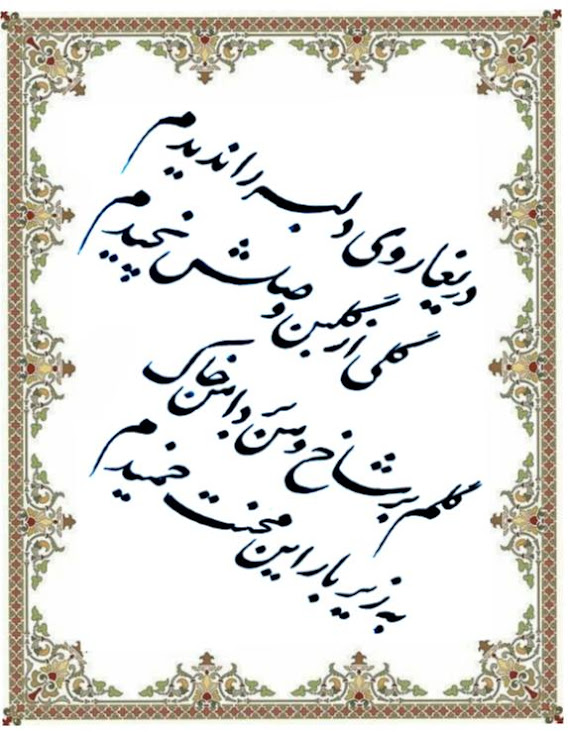 دریغا روی دلبر را ندیدم
گلی از گلبن وصلش نچیدم
گلم بر شاخ و من دامن خاک
به زیر بار این محنت خمیدم